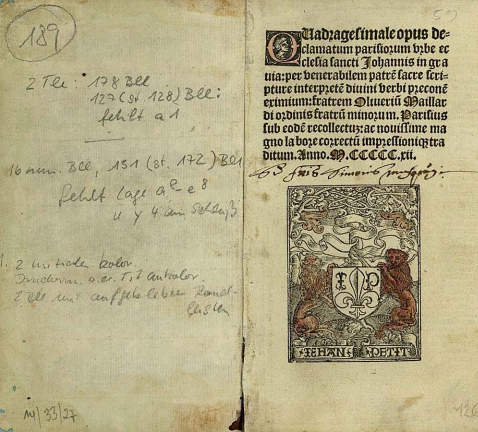 189
2 Tle: 178 Bll
127 (st. 128) Bll:
fehlt a 1
16 num. Bll, 151 (st. 172) Bll
fehlt Lage a
4 am Schluß
2 Initialen kolor.
2 Tle mit aufgeklebten Rand-
leisten
14/33/27
59
QUadragesimale opus de-
clamatum parisiorum vrbe ec
clesia sancti Johannis in gra
uia: per venerabilem patrē sacre scri-
pture interpretē diuini verbi preconē
eximium: fratrem Oliueriū Maillar
di ordinis fratrū minorum. Parisius
sub eodē recollectuz: ac nouissime ma
gno labore correctū impressioniqz tra
ditum. Anno. M.CCCCC.xii.
Simonis
I P
IEHAN PETIT
126